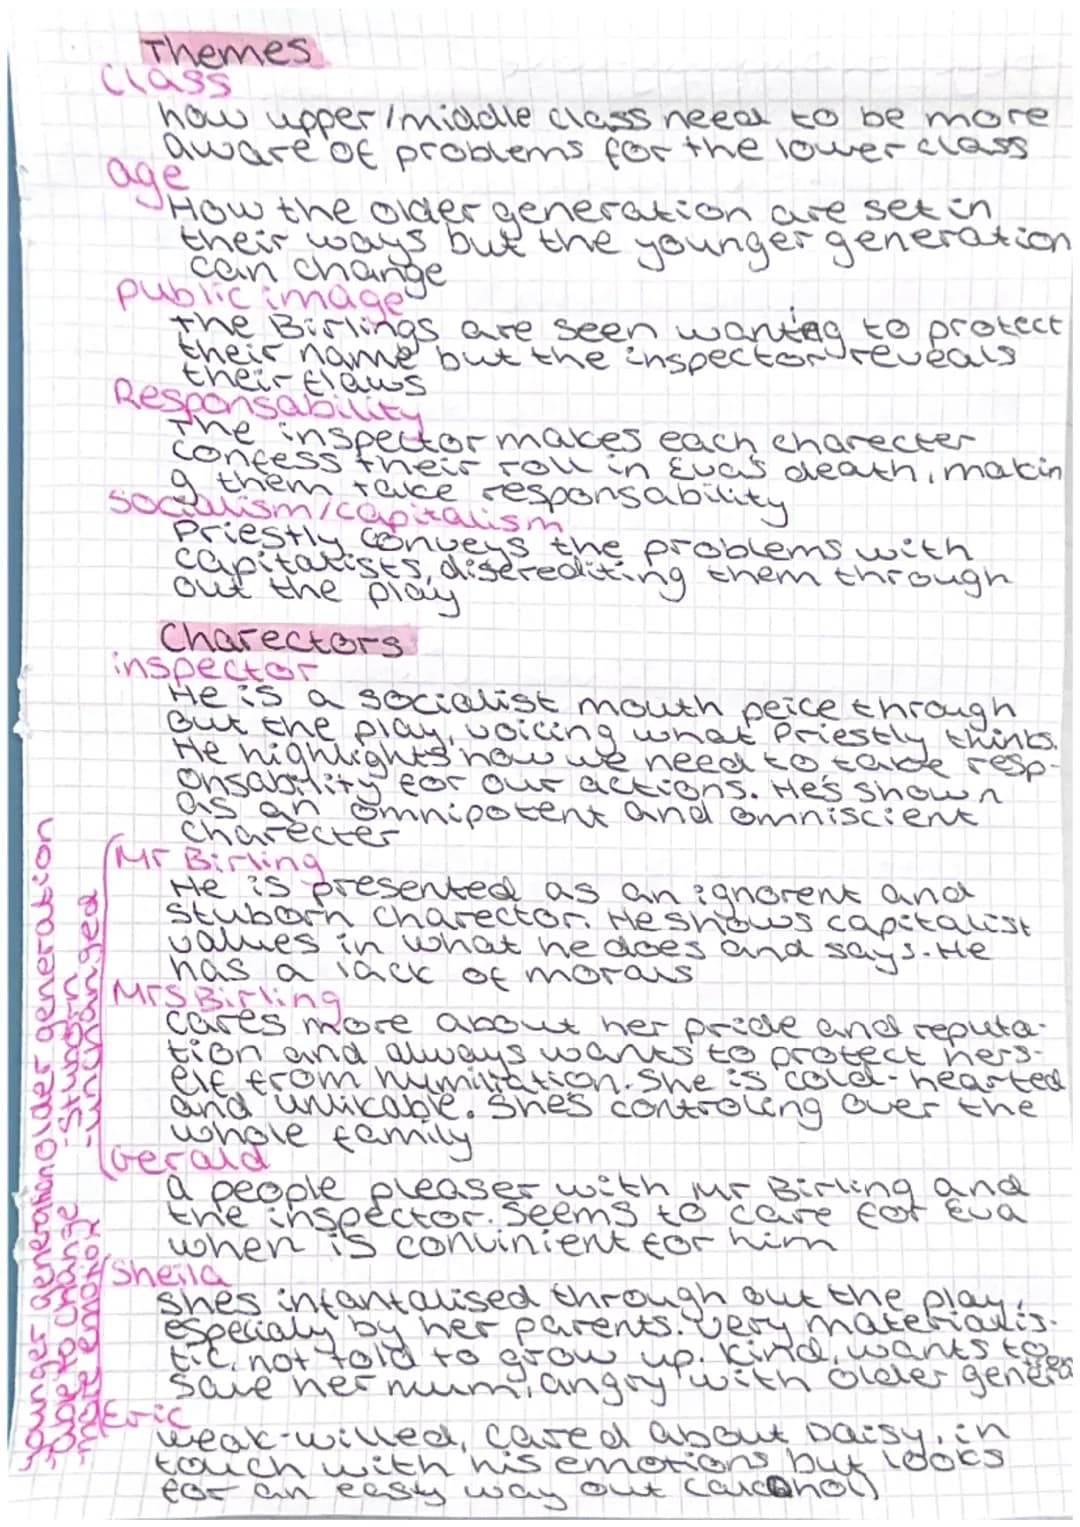 Themes
Class
how upper/middle class need to be more
aware of problems for the lower class
age
How the older generation are set in
their ways but the younger generation
can change
public image
the Birlings are seen wanting to protect
their name but the inspector reveals
their flaws
Responsability
The inspector makes each charecter
confess their roll in Eva's death, makin
g them take responsability
socialism/capitalism
Priestly conveys the problems with
capitalists, disrediting them through
out the play
Charectors
inspector
He is a socialist mouth peice through
out the play, voicing what Priestly thinks.
He highlights how we need to take resp-
onsability for our actions. He's shown
as an omnipotent and omniscient
charecter
Mr Birling
He is presented as an ignorent and
stuborn charector. He shows capitalist
values in what he does and says. He
has a lack of morals
Mrs Birling
cares more about her pride and reputa-
tion and always wants to protect hers-
elf from humiliation. She is cold-hearted
and unlikable. Shes controling over the
whole family
Gerald
a people pleaser with Mr Birling and
the inspector. Seems to care for Eva
when is convinient for him
Sheila
shes infantalised through out the play,
especialy by her parents. Very materialis-
tic, not told to grow up. Kind, wants to
save her mum, angry with older genera
Eric
weak-willed, cared about Daisy, in
touch with his emotions but looks
for an easy way out (alcohol)
older generation
-Stuborn
-unchanged
younger generation
-able to change
-more emotion